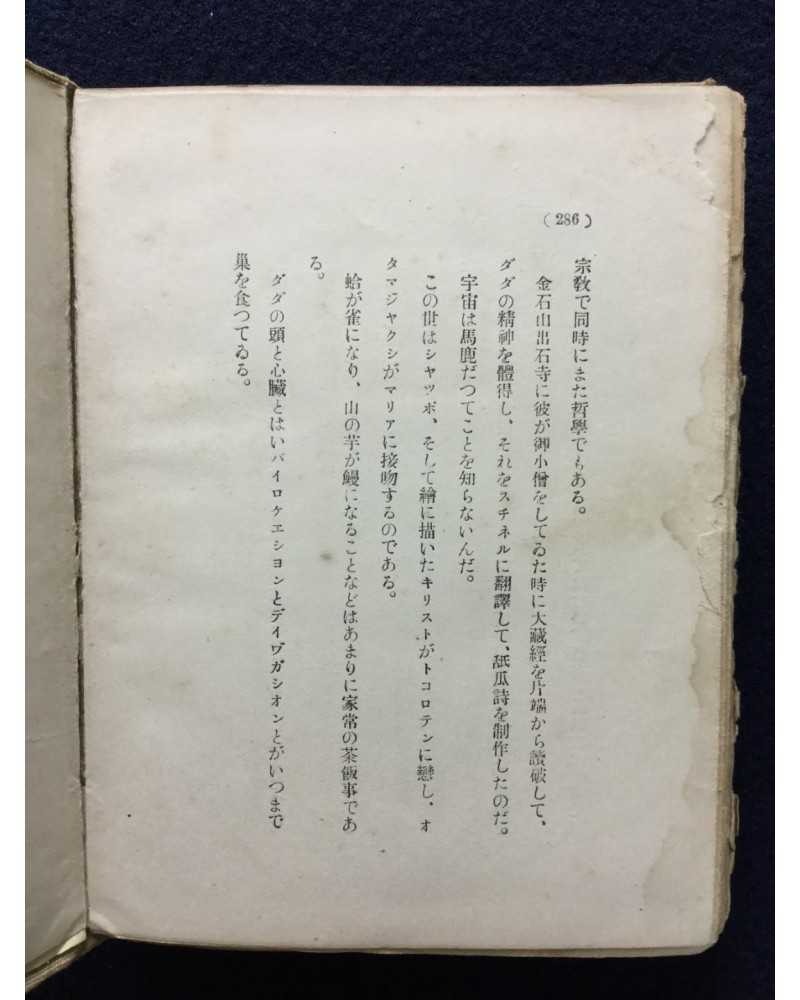 (286)
宗教で同時にまた哲學でもある。
金石山出石寺に彼が御小僧をしてゐた時に大藏經を片端から讀破して、
ダダの精神を體得し、それをスチネルに翻譯して、舐瓜詩を制作したのだ。
宇宙は馬鹿だつてことを知らないんだ。
この世はシヤツポ、そして繪に描いたキリストがトコロテンに戀し、オ
タマジヤクシがマリアに接吻するのである。
蛤が雀になり、山の芋が鰻になることなどはあまりに家常の茶飯事であ
る。
ダダの頭と心臟とはいバイロケエシヨンとデイヷガシオンとがいつまで
巢を食つてゐる。